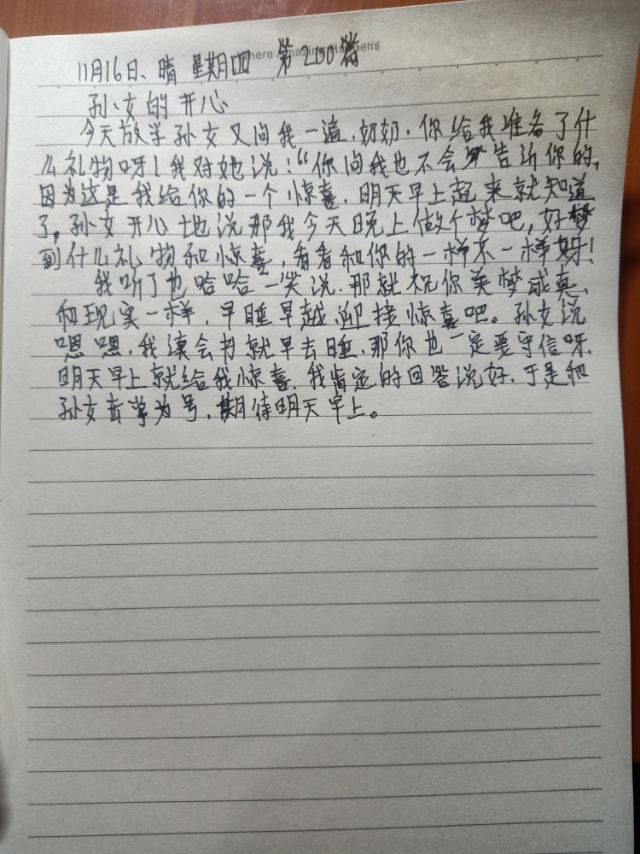 here Amazing Happens
11月16日、晴 星期四 第200篇
孙女的开心
今天放学孙女又问我一遍,奶奶,你给我准备了什
么礼物呀!我对她说:“你问我也不会告诉你的,
因为这是我给你的一个惊喜,明天早上起来就知道
了。孙女开心地说那我今天晚上做个梦吧,好梦
到什么礼物和惊喜,看看和你的一样不一样好!
我听了也哈哈一笑说,那就祝你美梦成真,
和现实一样,早睡早越迎接惊喜吧。孙女说
嗯嗯,我读会书就早去睡,那你也一定要守信呀,
明天早上就给我惊喜,我肯定的回答说好,于是和
孙女击掌为号,期待明天早上。